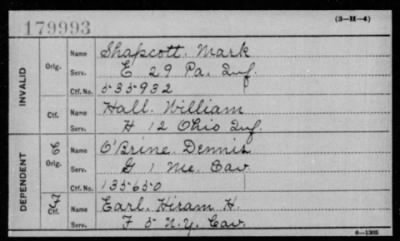 179993
(3-H-4)
INVALID
Orig.
Name Shapscott. Mark
Serv. E 29 Pa. Inf.
Ctf. No. 535932
Ctf.
Name Hall. William
Serv. H 12 Ohio Inf.
DEPENDENT
Orig.
Name O'Brine. Dennis
Serv. G 1 Me. Cav
Ctf. No. 135650
Ctf.
Name Earl. Hiram H.
Serv. F 5 N.Y. Cav.
6-1305